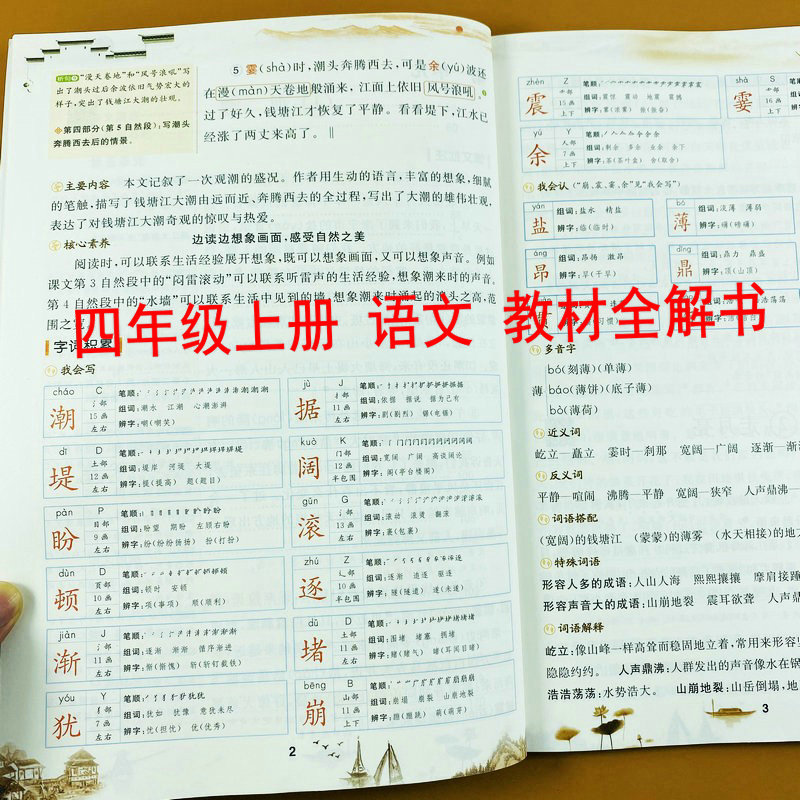 析句②“漫天卷地”和“风号浪吼”写
出了潮头过后余波依旧气势宏大的
样子，突出了钱塘江大潮的壮观。
第四部分（第5自然段）：写潮头
奔腾西去后的情景。
5 霎(shà)时，潮头奔腾西去，可是余(yú)波还
在漫(màn)天卷地般涌来，江面上依旧风号浪吼。
过了好久，钱塘江才恢复了平静。看看堤下，江水已
经涨了两丈来高了。‖
主要内容 本文记叙了一次观潮的盛况。作者用生动的语言，丰富的想象，细腻
的笔触，描写了钱塘江大潮由远而近、奔腾西去的全过程，写出了大潮的雄伟壮观，
表达了对钱塘江大潮奇观的惊叹与热爱。
核心素养 边读边想象画面，感受自然之美
阅读时，可以联系生活经验展开想象，既可以想象画面，又可以想象声音。例如
课文第3自然段中的“闷雷滚动”可以联系听雷声的生活经验，想象潮来时的声音。
第4自然段中的“水墙”可以联系生活中见到的墙，想象潮来时涌起的浪头之高，范
围之
四年级上册 语文 教材全解书
字词积累
我会写
cháo C 笔顺：
潮 氵部 15画 左右
组词：潮水 江潮 心潮澎湃
辨字：嘲(嘲笑)
jù J 笔顺：
据 扌部 11画 左右
组词：依据 据说 据为己有
辨字：剧(剧烈) 锯(电锯)
dī D 笔顺：
堤 土部 12画 左右
组词：堤岸 河堤 大堤
辨字：提(提高) 题(题目)
kuò K 笔顺：
阔 门部 12画 半包围
组词：宽阔 广阔 高谈阔论
辨字：阁(亭台楼阁)
pàn P 笔顺：
盼 目部 9画 左右
组词：盼望 期盼 左顾右盼
辨字：纷(纷纷扬扬) 扮(打扮)
gǔn G 笔顺：
滚 氵部 13画 左右
组词：滚动 滚烫 翻滚
辨字：裹(包裹)
dùn D 笔顺：
顿 页部 10画 左右
组词：顿时 安顿
辨字：项(事项) 顺(顺利)
zhú Z 笔顺：
逐 辶部 10画 半包围
组词：逐渐 追逐 驱逐
辨字：隧(隧道) 遂(未遂)
jiàn J 笔顺：
渐 氵部 11画 左右
组词：逐渐 渐渐 循序渐进
辨字：惭(惭愧) 斩(斩钉截铁)
dǔ D 笔顺：
堵 土部 11画 左右
组词：围堵 堵塞 拥堵
辨字：赌(赌气) 睹(耳闻目睹)
yóu Y 笔顺：
犹 犭部 7画 左右
组词：犹如 犹豫 意犹未尽
辨字：忧(担忧) 优(优秀)
bēng B 笔顺：
崩 山部 11画 上下
组词：崩塌 崩裂 山崩地裂
辨字：蹦(蹦跳) 萌(萌芽)
2
zhèn Z 笔顺：
震 雨部 15画 上下
组词：震惊 震动 地震 震撼
shà S
霎 16画 上下
yú Y 笔顺：
余 人部 7画 上下
组词：剩余 多余 业余 余下
辨字：茶(茶叶盒) 舍(取舍)
我会认(“崩、震、霎、余”见“我会写”)
yán
盐 组词：盐水 精盐
辨字：临(临时)
薄 组词：淡薄 薄弱
辨字：礴(磅礴)
áng
昂 组词：昂扬 激昂
辨字：旱(干旱)
dǐng
鼎 组词：鼎力 鼎盛
辨字：顶(山顶)
多音字
bó(刻薄)(单薄)
薄 báo(薄饼)(底子薄)
bò(薄荷)
近义词
屹立—矗立 霎时—刹那 宽阔—广阔 逐渐—渐
反义词
平静—喧闹 沸腾—平静 宽阔—狭窄 人声鼎沸—
词语搭配
(宽阔)的钱塘江 (蒙蒙)的薄雾 (水天相接)的地
特殊词语
形容人多的成语：人山人海 熙熙攘攘 摩肩接
形容声音大的成语：山崩地裂 震耳欲聋 人声
词语解释
屹立：像山峰一样高耸而稳固地立着，常用来形容
隐隐约约。 人声鼎沸：人群发出的声音像水在锅
浩浩荡荡：水势浩大。 山崩地裂：山岳倒塌，地
3